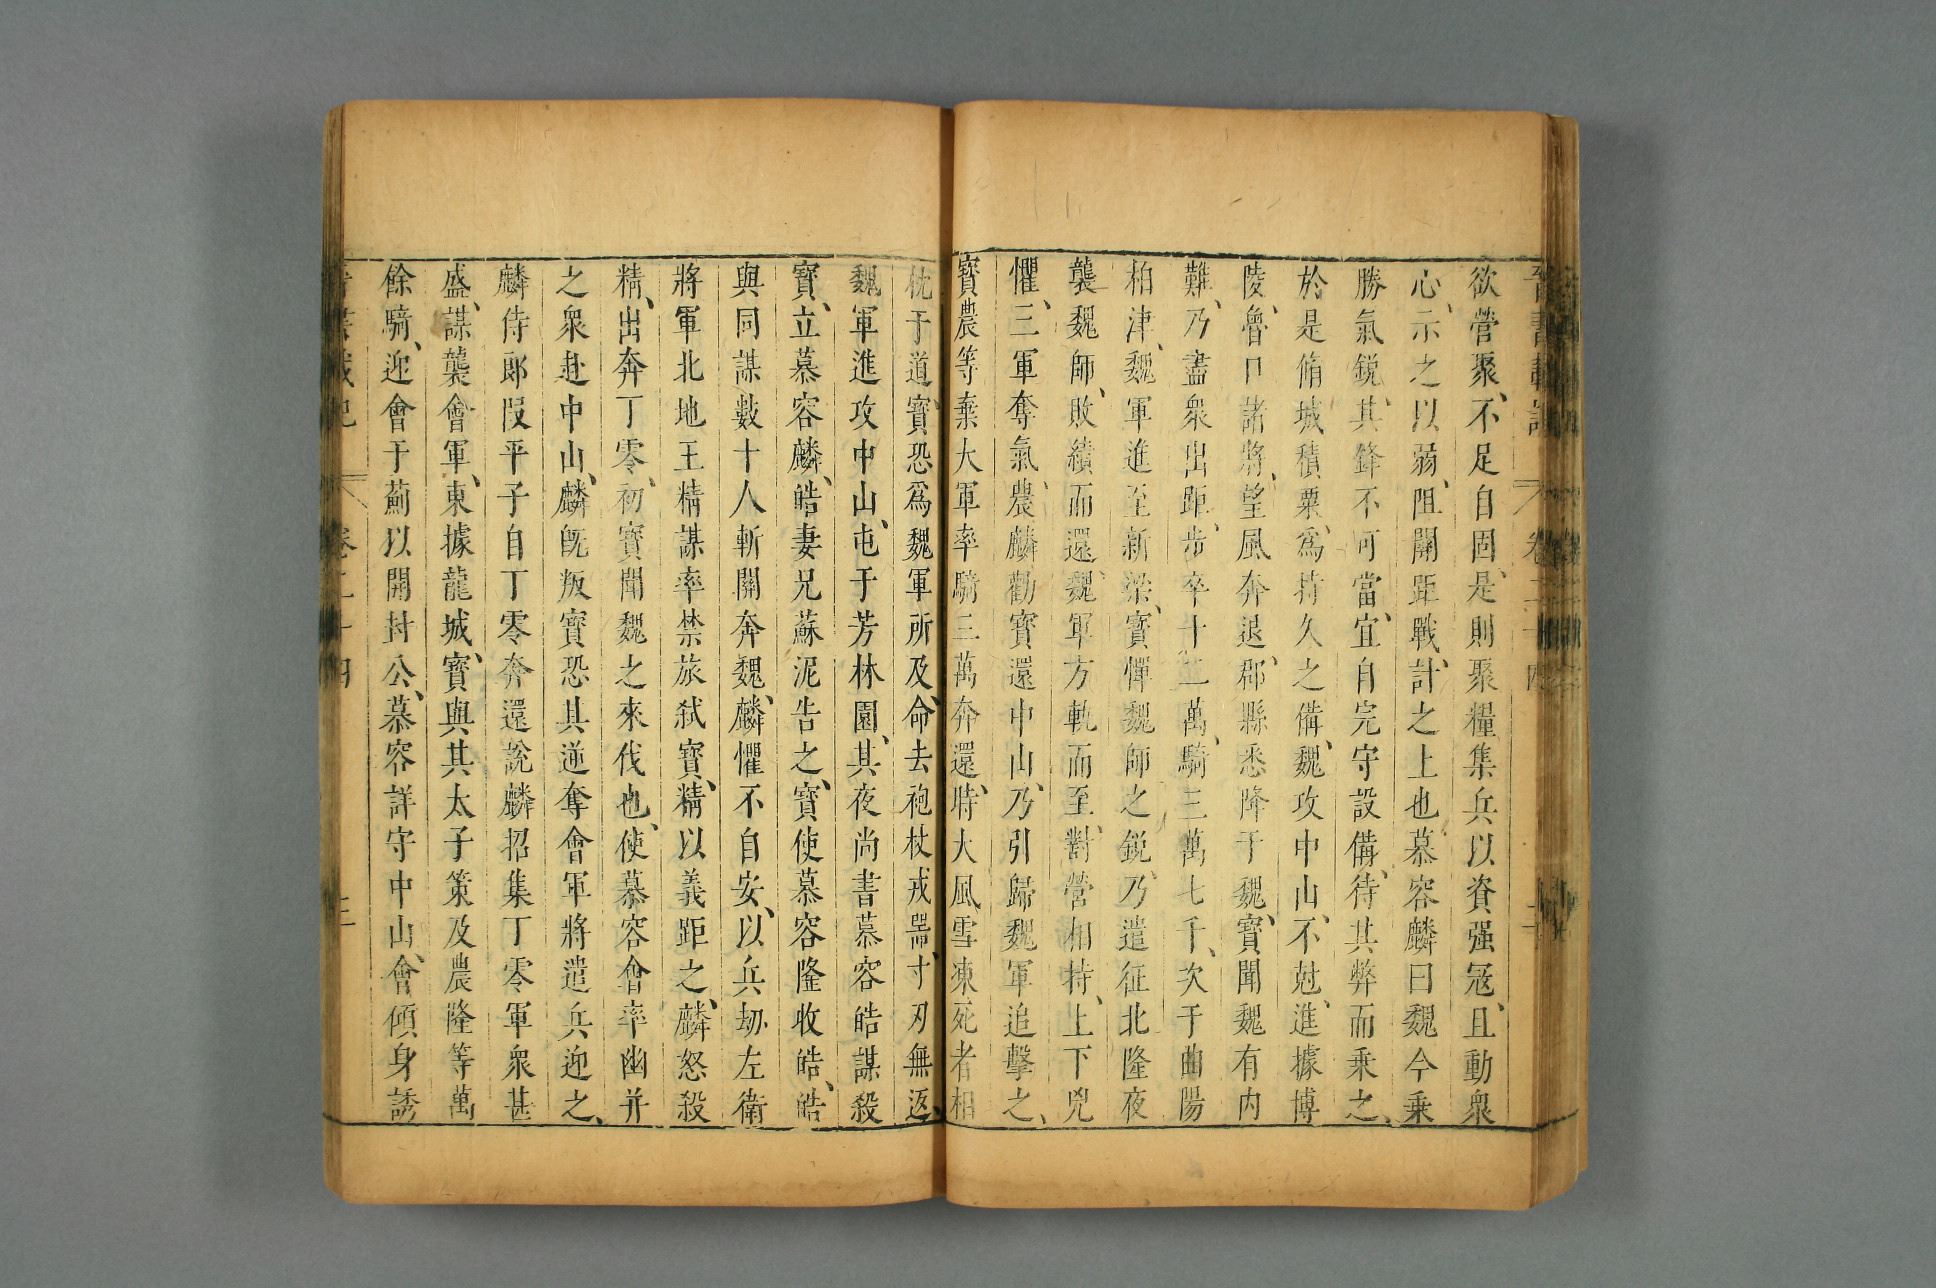 晉書載記 卷二十四
欲營聚、不足自固、是則聚糧集兵以資强寇、且動衆
心、示之以弱、阻關距戰、計之上也、慕容麟曰魏今乗
勝氣銳、其鋒不可當、宜自完守設備、待其弊而乗之、
於是脩城積粟、爲持久之備、魏攻中山、不尅、進據博
陵魯口諸將、望風奔退、郡縣悉降于魏、寶聞魏有内
難、乃盡衆出距、步卒十二萬、騎三萬七千、次于曲陽
柏津、魏軍進至新梁、寶憚魏師之銳、乃遣征北隆夜
襲魏師、敗績而還、魏軍方軌而至、對營相持、上下兇
懼、三軍奪氣、農麟勸寶還中山、乃引歸魏軍追擊之、
寶農等棄大軍率騎三萬奔還、時大風雪凍死者相
枕于道、寶恐爲魏軍所及、命去袍杖戎噐、寸刃無返、
魏軍進攻中山、屯于芳林園、其夜尚書慕容皓謀殺
寶、立慕容麟、皓妻兄蘇泥告之、寶使慕容隆收皓、皓
與同謀數十人斬關奔魏、麟懼不自安、以兵劫左衛
將軍北地王精謀率禁旅弑寶、精以義距之、麟怒殺
精、出奔丁零、初寶聞魏之來伐也、使慕容會率幽并
之衆赴中山、麟旣叛寶恐其逆奪會軍將遣兵迎之、
麟侍郎段平子自丁零奔還說麟招集丁零軍衆甚
盛、謀襲會軍、東據龍城、寶與其太子策及農隆等萬
餘騎、迎會于薊以開封公、慕容詳守中山、會傾身誘
卷二十四 三